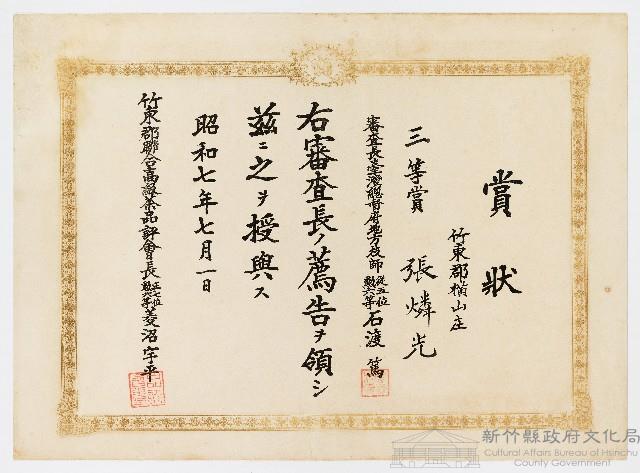 賞狀
竹東郡橫山庄
三等賞 張燐光
審查長臺灣總督府地方技師 從五位勲六等 石渡 篤
右審査長ノ薦告ヲ領シ
茲ニ之ヲ授與ス
昭和七年七月一日
竹東郡聯合高級茶品評會長 菱沼宇平
新竹縣政府文化局
Cultural Affairs Bureau of Hsinchu
County Government